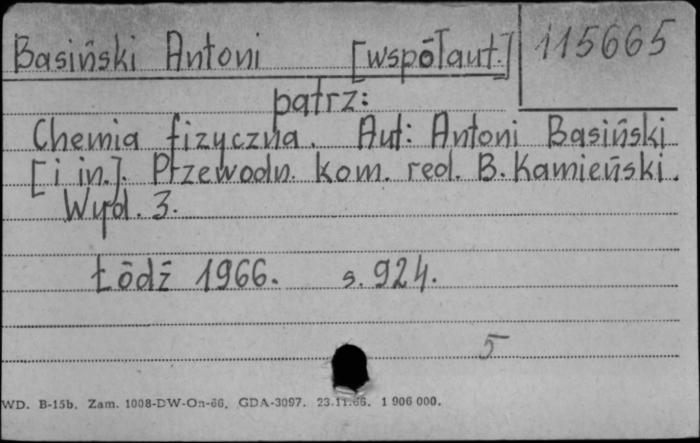 Basiński Antoni [współaut.] 115665
patrz:
Chemia fizyczna. Aut: Antoni Basiński
[i in.]. Przewodn. kom. red. B. Kamieński.
Wyd. 3.
Łódź 1966. s. 924.
5
WD. B-15b. Zam. 1008-DW-On-66. GDA-3097. 23.11.66. 1 906 000.